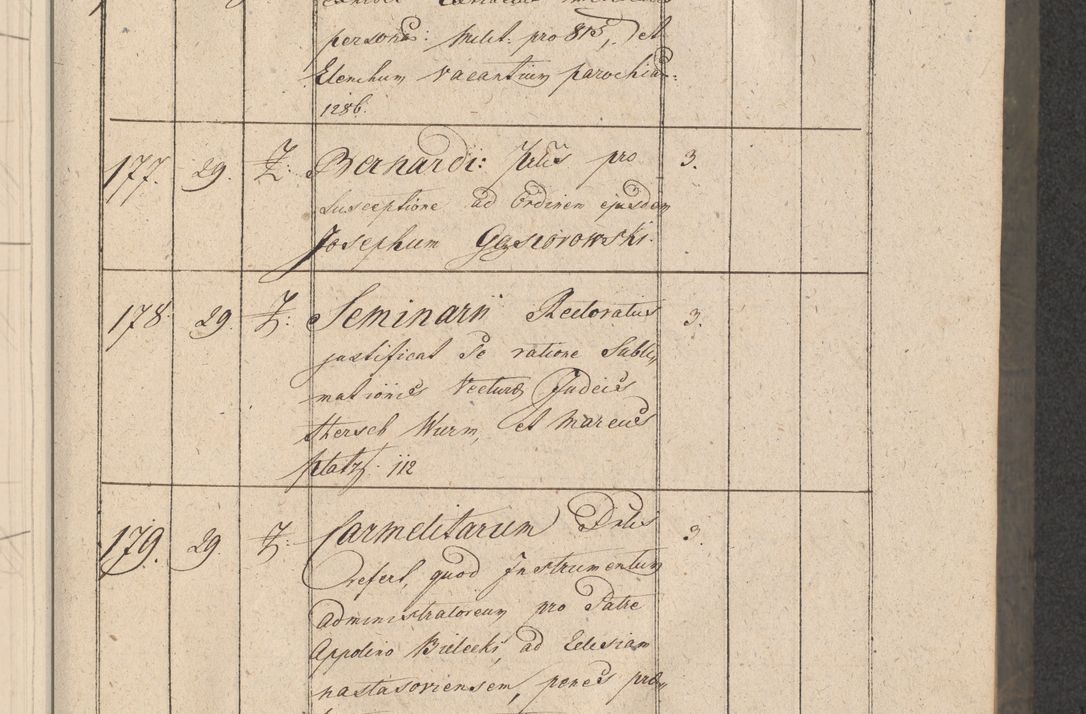 person: Milit: pro 815, et
Elenchum vacantium parochia:
1286.
177. 29. Z: Bernardi: pro 3.
Susceptione ad Ordinem ejusdem
Josephum Gąsiorowski.
178. 29. Z: Seminarii Rectoratus 3.
justificat se ratione Subli„
mationis Vecturæ Judeis
Herseb Wurm, et Mareus
Platz. 112
179. 29. Z: Carmelitarum 3.
refert, quod Instrumentum
Administratoreum pro Patre
Appolino Bielecki, ad Eclesiam
nastasoviensem, penes præ„